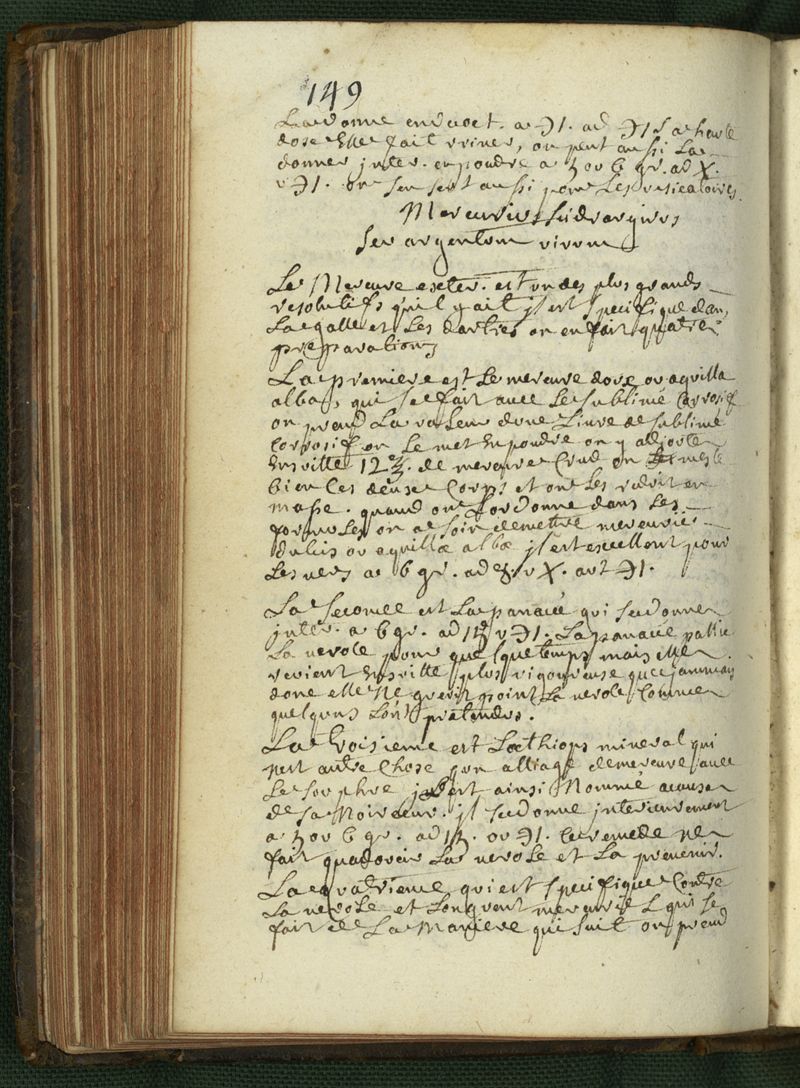 149
La donne en decoct. a ℈1. ad ℈1 S a haute
dose elle fait vriner, on peut aussi La
donner inter. en poudre a ʒ ov 6 gr. ad X.
v ℈1. on sen sert aussi pour Les vesicatoires.
Mercurius hidrargirus
Seu argentum vivum
Le Mercure exter. est un des plus grands
resolutifs qu'il y ait jl est specifique dans
La galle et Les dartres on en fait quatre
preparations
La premiere est Le mercure doux ov aqvilla
alba, qui se fait avec Le sublimé Corrosif
on prend La valeur dune Livre de sublimé
Corrosif on Le met en poudre on y adjoute
Ensvitte 12 ℥. de mercure Crud on mesle
bien Les deux Corps et on Les reduit en
masse. quand on Lordonne dans Les
formules on a soin de mettre mercurii
dulcis ov aquillæ albæ jl est excellent pour
Les vers a 6 gr. ad v X. aut ℈1.
La Seconde est La panacée qui se donne
inter. a 6 gr. ad v ℈1. La panacée pallie
La verole pour quelque temps mais elle
revient Ensvitte plus vigoureuse que jammais
donc elle Ne guerit point La verole Comme
quelquns Lont pretendus.
La troisieme est Lœthiops mineral qui
nest autre Chose qun alliage de mercure avec
Le souphre jl est ainsi Nommé a cause
de sa Noirceur. jl se donne interieurement
a ʒ ov 6 gr. ad ov ℈1. Ce remede ne
fait quadoucir La verole et La prevenir.
La qvatrieme qvi est specifique Contre
La verole est Longvent mercuriel qui se
fait de La Maniere qui suit on prend